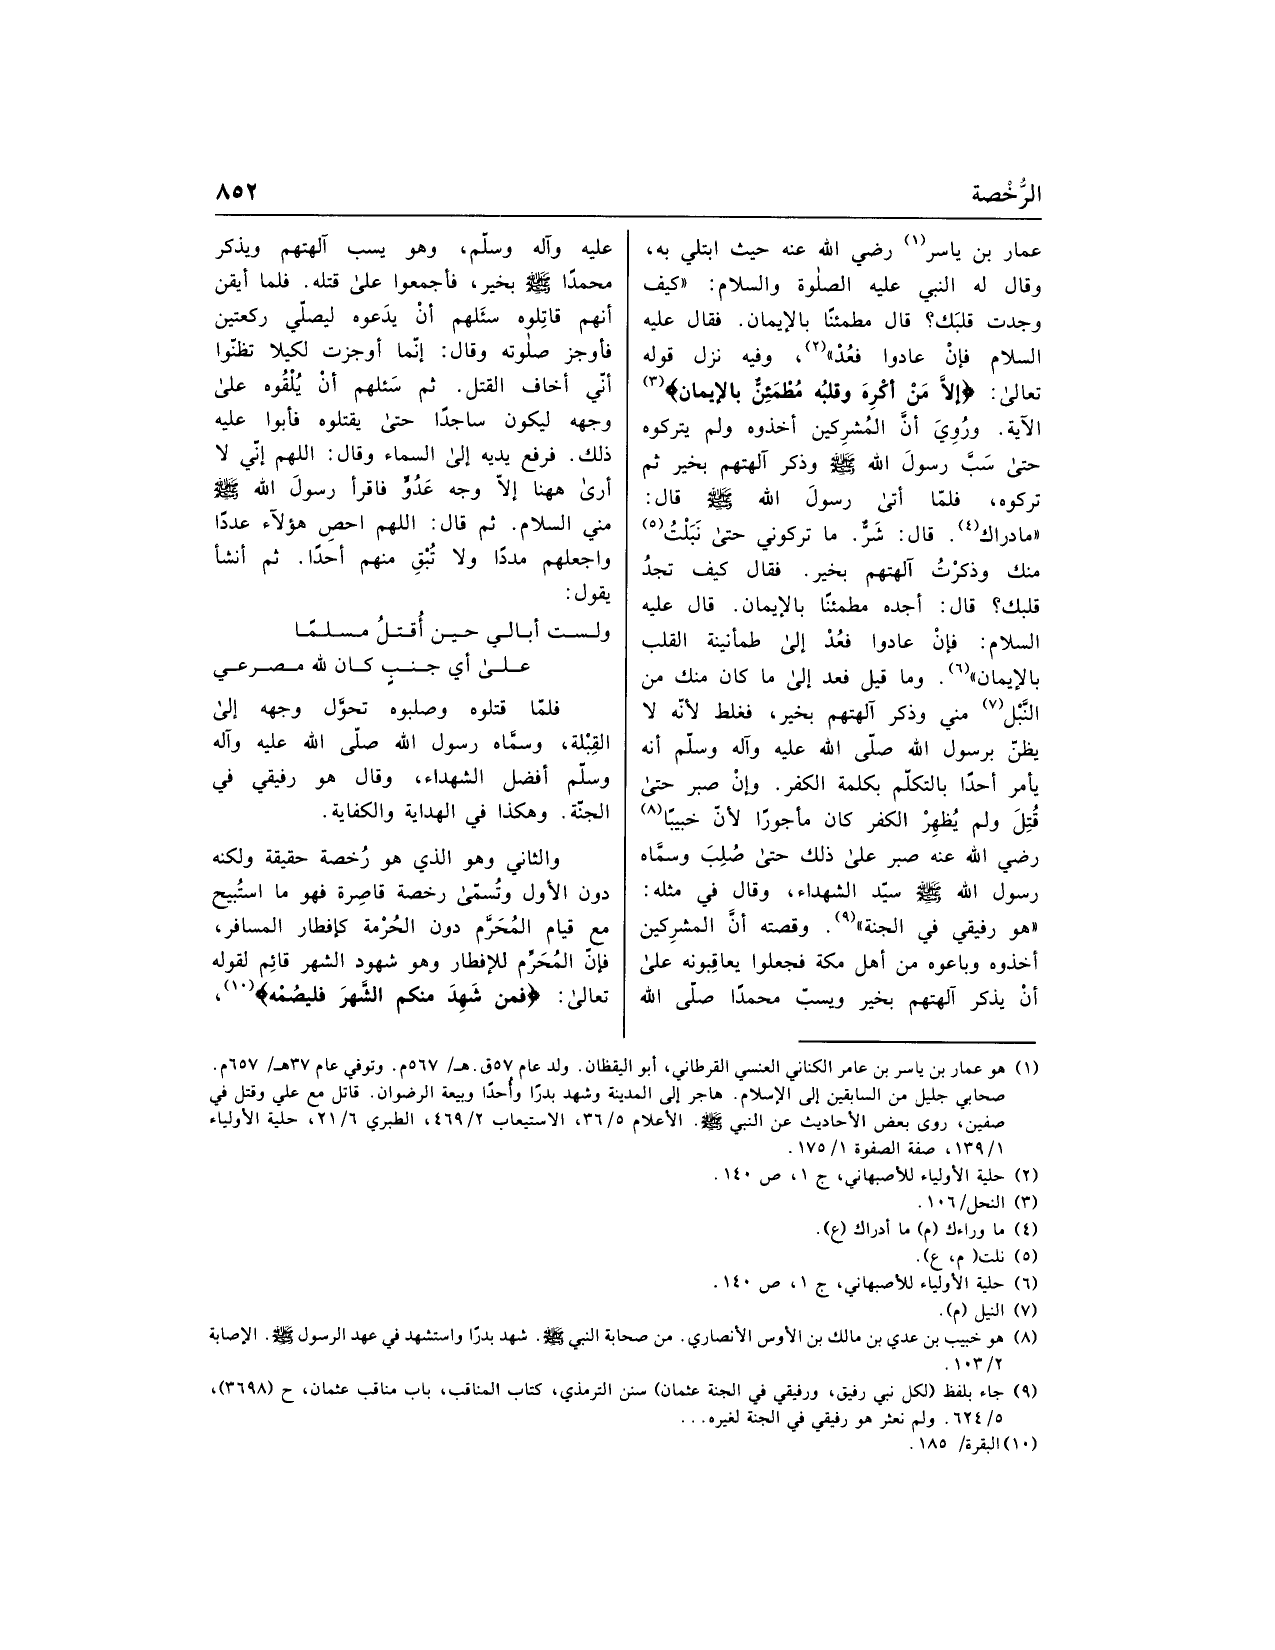 الرُّخْصة
٨٥٢
عمار بن ياسر(١) رضي الله عنه حيث ابتلي به،
وقال له النبي عليه الصلٰوة والسلام: «كيف
وجدت قلبَك؟ قال مطمئنًا بالإيمان. فقال عليه
السلام فإنْ عادوا فعُدْ»(٢)، وفيه نزل قوله
تعالىٰ: ﴿إلاَّ مَنْ أكْرِهَ وقلبُه مُطْمَئِنٌّ بالإيمان﴾(٣)
الآية. ورُوِيَ أنَّ المُشرِكين أخذوه ولم يتركوه
حتىٰ سَبَّ رسولَ الله ﷺ وذكر آلهتهم بخير ثم
تركوه، فلمّا أتىٰ رسولَ الله ﷺ قال:
«مادراك(٤). قال: شَرٌّ. ما تركوني حتىٰ نَبَلْتُ(٥)
منك وذكرْتُ آلهتهم بخير. فقال كيف تجدُ
قلبك؟ قال: أجده مطمئنًا بالإيمان. قال عليه
السلام: فإنْ عادوا فعُدْ إلىٰ طمأنينة القلب
بالإيمان»(٦). وما قيل فعد إلىٰ ما كان منك من
النَّبْل(٧) مني وذكر آلهتهم بخير، فغلط لأنّه لا
يظنّ برسول الله صلّى الله عليه وآله وسلّم أنه
يأمر أحدًا بالتكلّم بكلمة الكفر. وإنْ صبر حتىٰ
قُتِلَ ولم يُظهِرْ الكفر كان مأجورًا لأنّ خبيبًا(٨)
رضي الله عنه صبر علىٰ ذلك حتىٰ صُلِبَ وسمَّاه
رسول الله ﷺ سيّد الشهداء، وقال في مثله:
«هو رفيقي في الجنة»(٩). وقصته أنَّ المشرِكين
أخذوه وباعوه من أهل مكة فجعلوا يعاقِبونه علىٰ
أنْ يذكر آلهتهم بخير ويسبّ محمدًا صلّى الله
عليه وآله وسلّم، وهو يسب آلهتهم ويذكر
محمدًا ﷺ بخير، فأجمعوا علىٰ قتله. فلما أيقن
أنهم قاتِلوه سئَلهم أنْ يدَعوه ليصلّي ركعتين
فأوجز صلٰوته وقال: إنّما أوجزت لكيلا تظنّوا
أنّي أخاف القتل. ثم سَئلهم أنْ يُلْقُوه علىٰ
وجهه ليكون ساجدًا حتىٰ يقتلوه فأبوا عليه
ذلك. فرفع يديه إلىٰ السماء وقال: اللهم إنّي لا
أرىٰ ههنا إلاّ وجه عَدُوٍّ فاقرأ رسولَ الله ﷺ
مني السلام. ثم قال: اللهم احصِ هؤلآء عددًا
واجعلهم مددًا ولا تُبْقِ منهم أحدًا. ثم أنشأ
يقول:
ولست أبالي حين أُقتلُ مسلمًا
علىٰ أي جنبٍ كان لله مصرعي
فلمّا قتلوه وصلبوه تحوَّل وجهه إلىٰ
القِبْلة، وسمَّاه رسول الله صلّى الله عليه وآله
وسلّم أفضل الشهداء، وقال هو رفيقي في
الجنّة. وهكذا في الهداية والكفاية.
والثاني وهو الذي هو رُخصة حقيقة ولكنه
دون الأول وتُسمّىٰ رخصة قاصِرة فهو ما استُبيح
مع قيام المُحَرَّم دون الحُرْمة كإفطار المسافر،
فإنّ المُحَرِّم للإفطار وهو شهود الشهر قائِم لقوله
تعالىٰ: ﴿فمن شَهِدَ منكم الشَّهرَ فليصُمْه﴾(١٠)،
(١) هو عمار بن ياسر بن عامر الكناني العنسي القرطاني، أبو اليقظان. ولد عام ٥٧ق.هـ/ ٥٦٧م. وتوفي عام ٣٧هـ/ ٦٥٧م.
صحابي جليل من السابقين إلى الإسلام. هاجر إلى المدينة وشهد بدرًا وأُحدًا وبيعة الرضوان. قاتل مع علي وقتل في
صفين، روى بعض الأحاديث عن النبي ﷺ. الأعلام ٣٦/٥، الاستيعاب ٤٦٩/٢، الطبري ٢١/٦، حلية الأولياء
١٣٩/١، صفة الصفوة ١٧٥/١.
(٢) حلية الأولياء للأصبهاني، ج ١، ص ١٤٠.
(٣) النحل/١٠٦.
(٤) ما وراءك (م) ما أدراك (ع).
(٥) نلت( م، ع).
(٦) حلية الأولياء للأصبهاني، ج ١، ص ١٤٠.
(٧) النيل (م).
(٨) هو خبيب بن عدي بن مالك بن الأوس الأنصاري. من صحابة النبي ﷺ. شهد بدرًا واستشهد في عهد الرسول ﷺ. الإصابة
١٠٣/٢.
(٩) جاء بلفظ (لكل نبي رفيق، ورفيقي في الجنة عثمان) سنن الترمذي، كتاب المناقب، باب مناقب عثمان، ح (٣٦٩٨)،
٦٢٤/٥. ولم نعثر هو رفيقي في الجنة لغيره...
(١٠) البقرة/ ١٨٥.